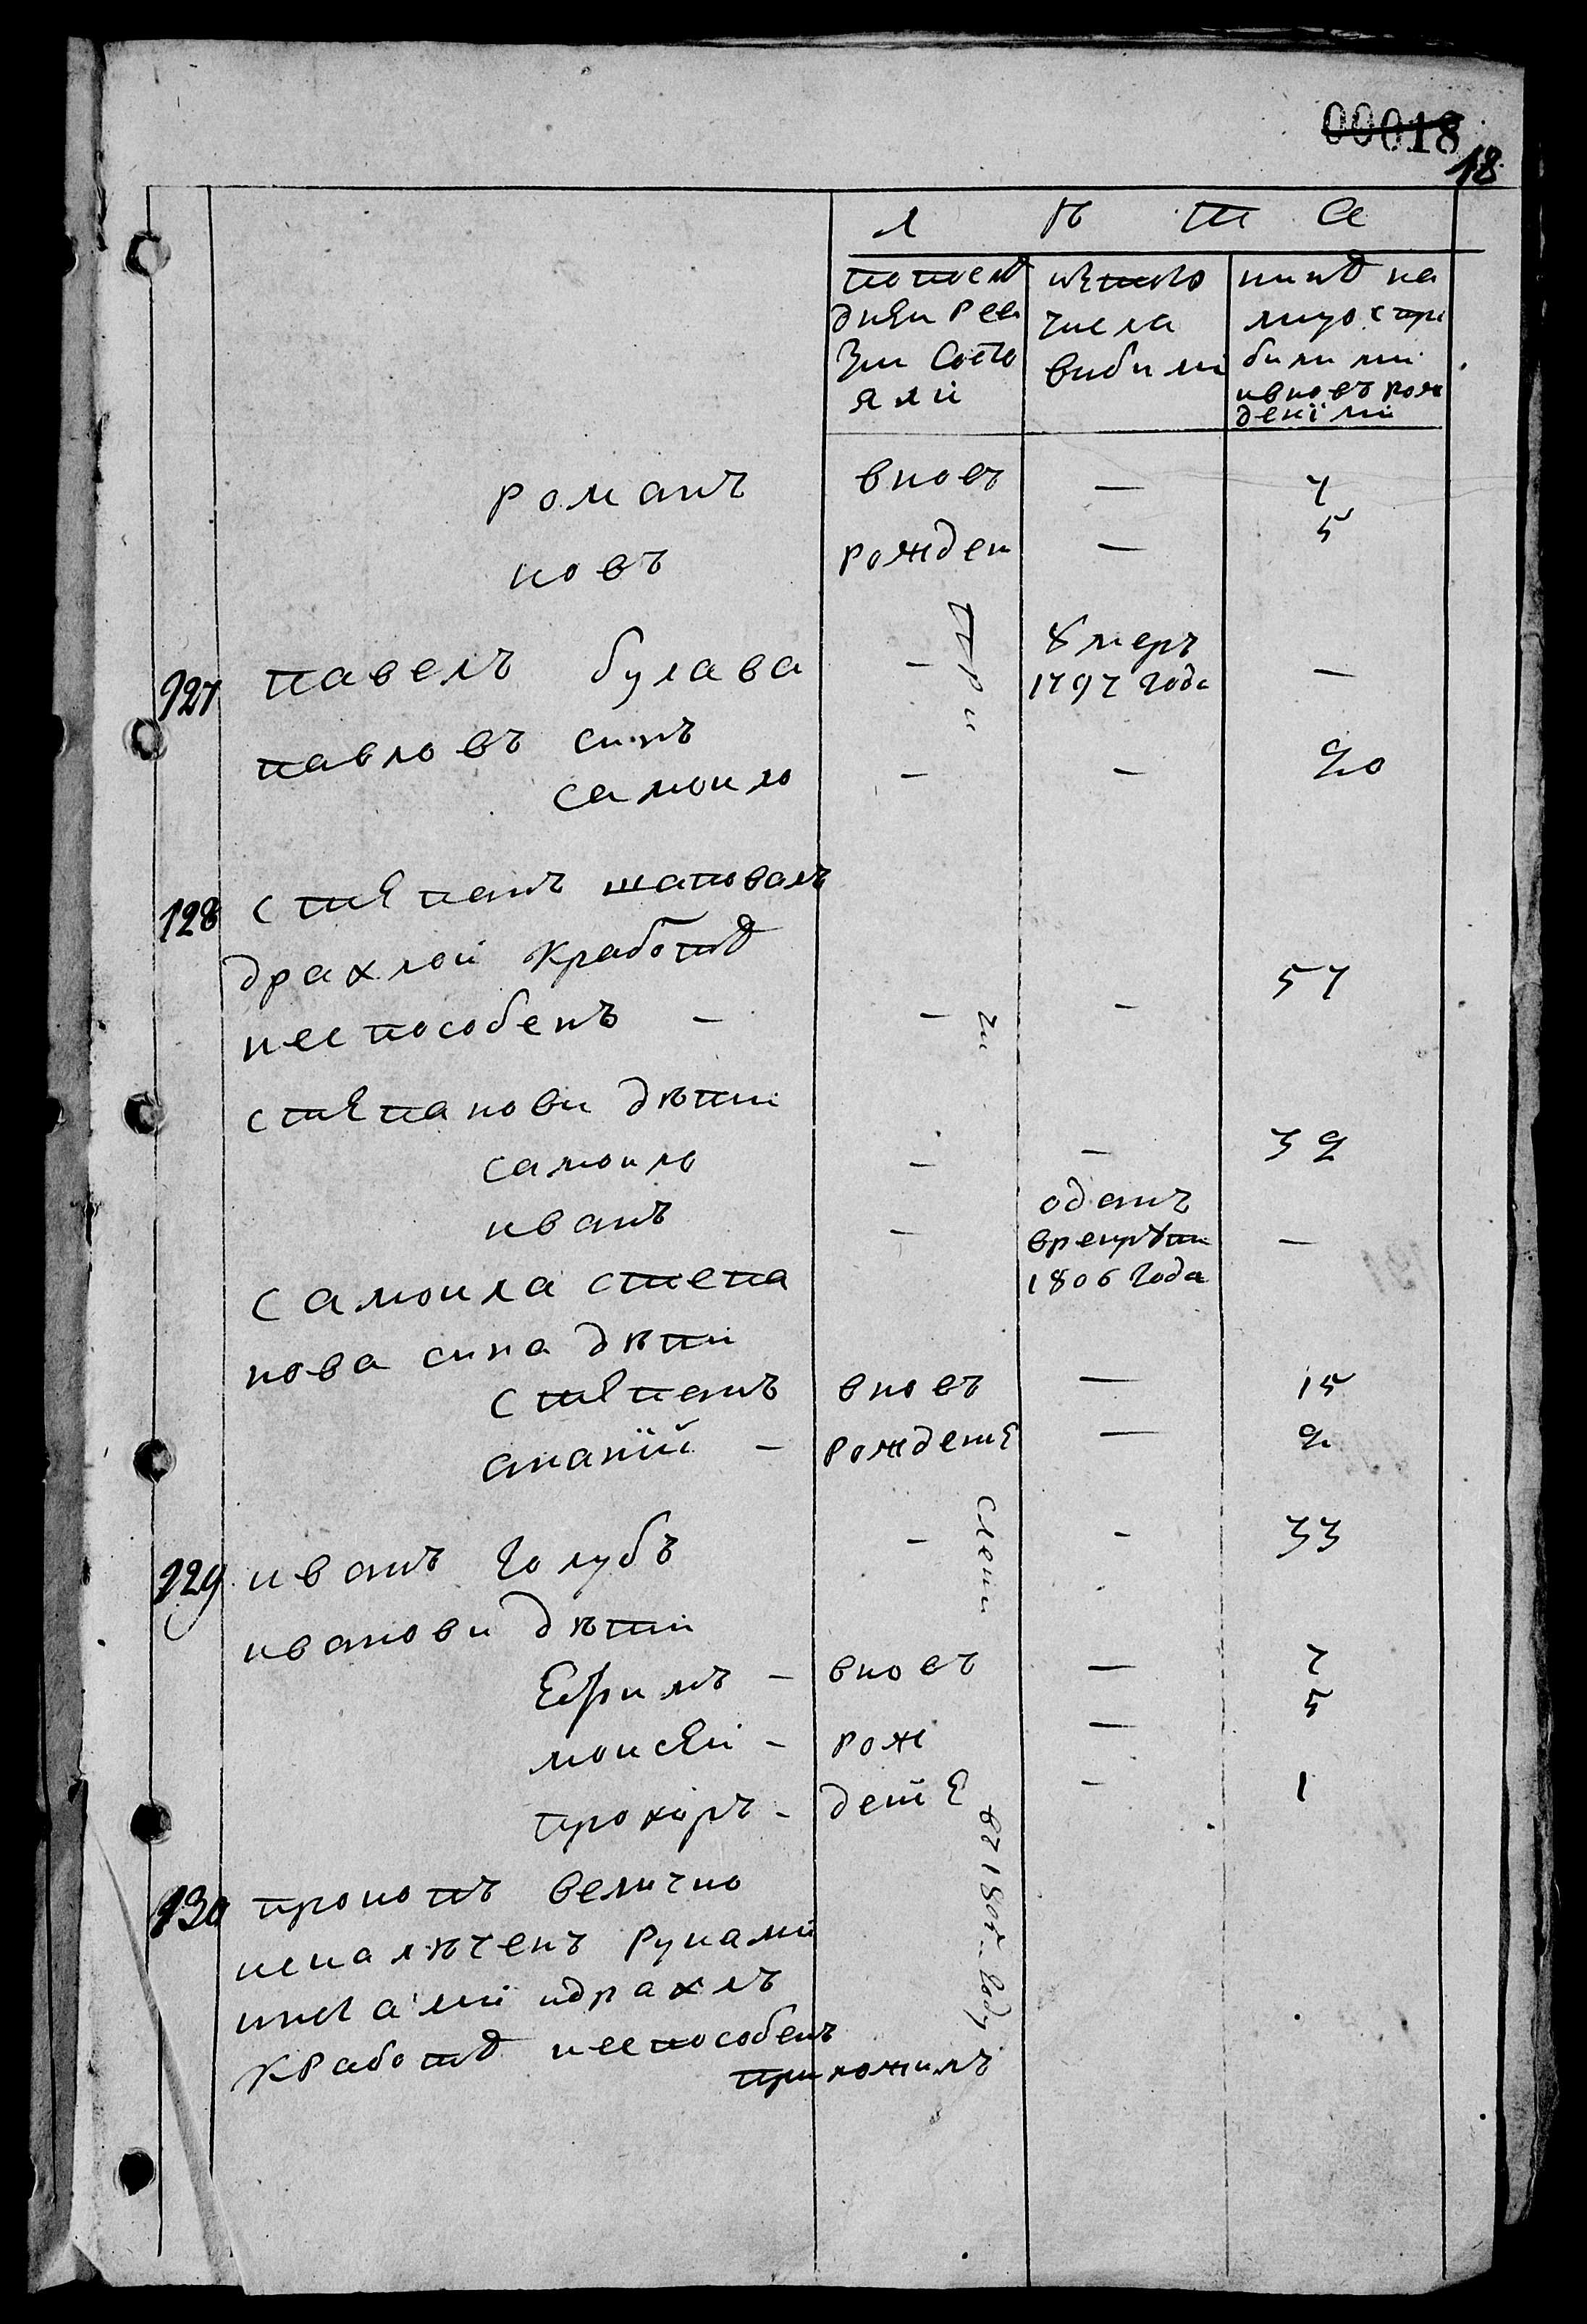 00018
18
л ѣ т а
попослѣ
дней реви
зіи состо
яли
изтого
числа
вибили
нинѣ на
лицо стри
били ми
ивновъ рож
денїми
романъ вновъ — 7
новъ рожден — 5
127 павелъ булава - умеръ
1797 года —
павловъ синъ
самоило - - 20
128 стєпанъ шаповалъ
драхлой кработѣ
неспособенъ - - - 57
стєпанови дѣти
самоило - - 39
иванъ - оданъ
врекрути
1806 года —
самоила степа
нова сина дѣти
стєпанъ вновъ — 15
ананїй - рожденіє — 9
129 иванъ голубъ - - 33
иванови дѣти
Ефимъ - вновъ — 7
моисєй - рож — 5
прохоръ - деніє - 1
130 прокопъ величко
искалѣченъ руками
иногами идрахлъ
кработѣ неспособенъ
при
чи
слени
въ 180 году